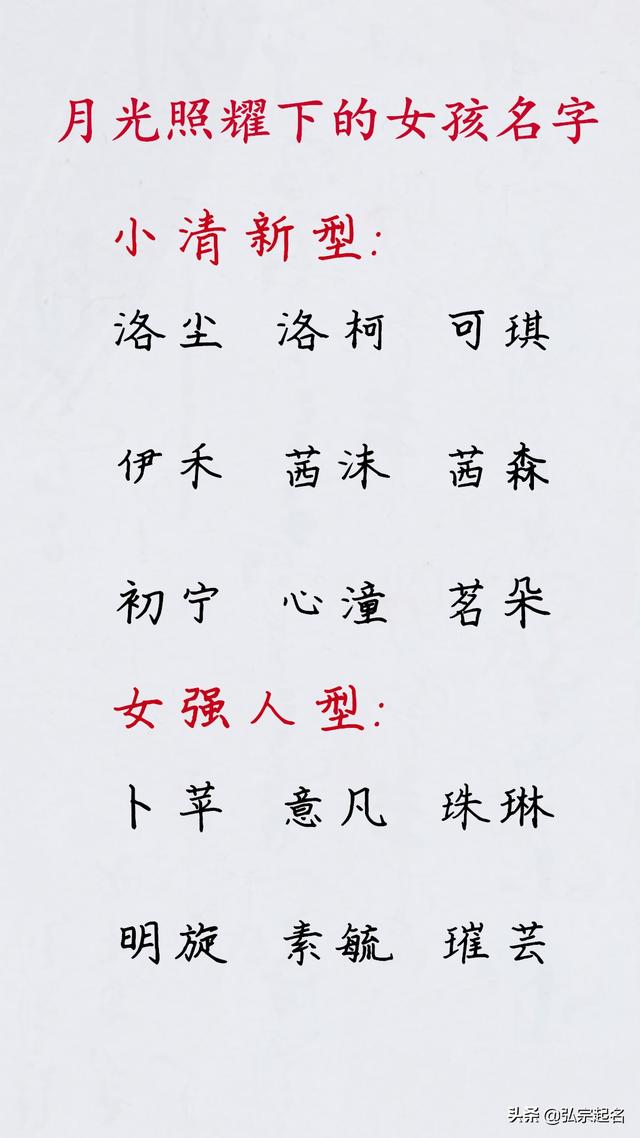 月光照耀下的女孩名字
小清新型:
洛尘 洛柯 可琪
伊禾 茜沫 茜森
初宁 心潼 茗朵
女强人型:
卜苹 意凡 珠琳
明旋 素毓 璀芸
头条 @弘宗起名